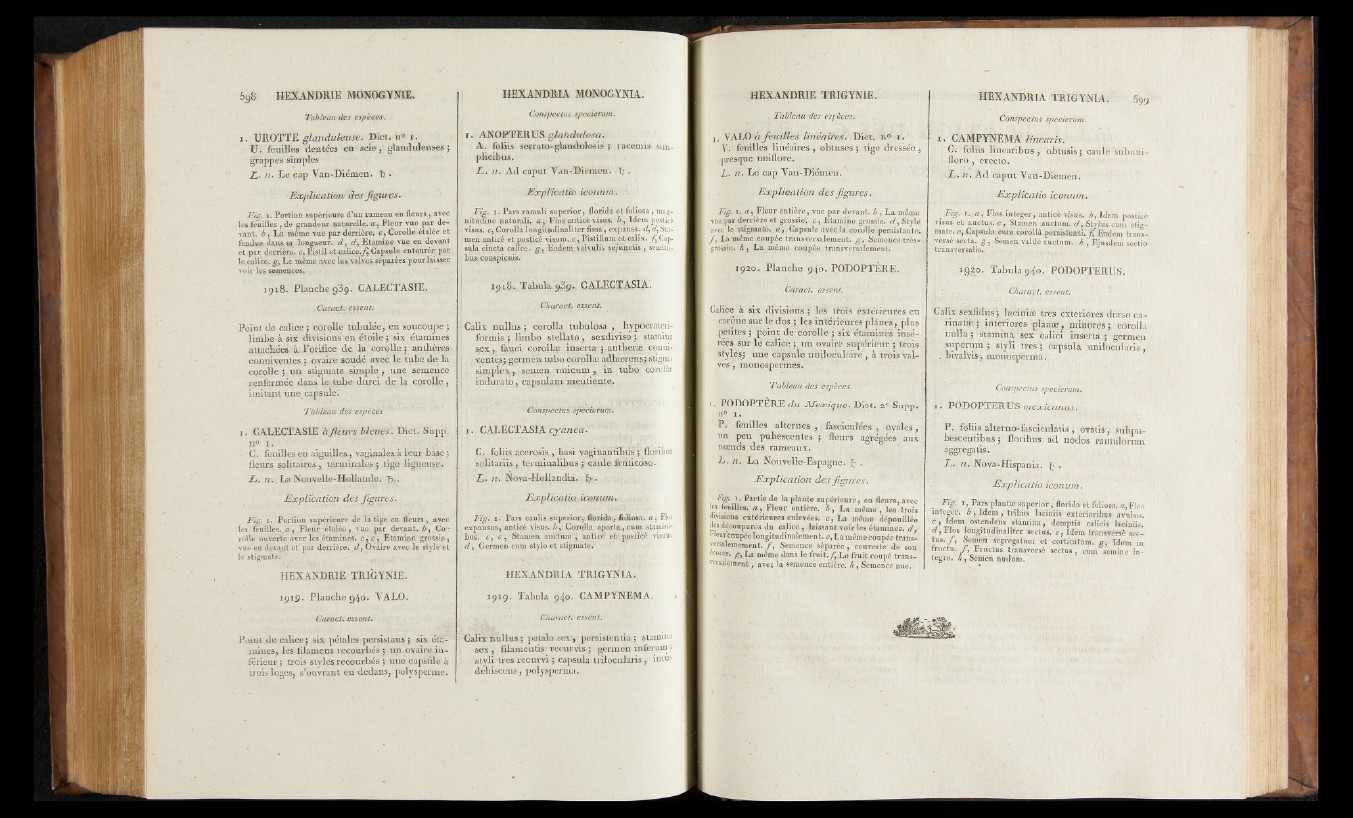 598 HEXANDRIE MONOGYNIE.
Tableau des espèces.
1. UROTTE glanduleuse. Dict. n° 1.
U. feuilles dentées en scie, glanduleuses;
grappes simples
L. n. Le cap Van-Diémen. ♄.
Explication des figures.
Fig. 1. Portion supérieure d'un rameau en fleurs, avec
les feuilles, de grandeur naturelle. a, Fleur vue par de-
vant. b, La même vue par derrière. c, Corolle étalée et
fendue dans sa longueur. d, d, Etamine vue en devant
et par derrière. e, Pistil et calice. f, Capsule entourée par
le calice. g, La même avec les valves séparées pour laisser
voir les semences.
1918. Planche 939. CALECTASIE.
Caract. essent.
Point de calice; corolle tubulée, en soucoupe;
limbe à six divisions en étoile; six étamines
attachées à l'orifice de la corolle; anthères
conniventes; ovaire soudé avec le tube de la
corolle; un stigmate simple, une semence
renfermée dans le tube durci de la corolle,
imitant une capsule.
Tableau des espèces
1. CALECTASIE à fleurs bleues. Dict. Supp.
n° 1.
C. feuilles en aiguilles, vaginales à leur base;
fleurs solitaires, terminales; tige ligneuse.
L. n. La Nouvelle-Hollande. ♄.
Explication des figures.
Fig. 1. Portion supérieure de la tige en fleurs, avec
les feuilles. a, Fleur étalée, vue par devant. b, Co-
rolle ouverte avec les étamines. c, c, Etamine grossie,
vue en devant et par derrière. d, Ovaire avec le style et
le stigmate.
HEXANDRIE TRIGYNIE.
1919. Planche 940. VALO.
Caract. essent.
Point de calice; six pétales persistans; six éta-
mines, les filamens recourbés; un ovaire in-
férieur; trois styles recourbés; une capsule à
trois loges, s'ouvrant en dedans, polysperme.
HEXANDRIA MONOGYNIA.
Conspectus specierum.
1. ANOPTERUS glandulosa.
A. foliis serrato-glandulosis; racemis sim-
plicibus.
L. n. Ad caput Van-Diemen. ♄.
Explicatio iconum.
Fig. 1. Pars ramuli superior, florida et foliosa, mag-
nitudine naturali. a, Flos anticè visus. b, Idem posticè
visus. c, Corolla longitudinaliter fissa, expansa. d, d, Sta-
men anticè et posticè visum. e, Pistillum et calix. f, Cap-
sula cincta calice. g, Eadem valvulis sejunctis, semini-
bus conspicuis.
1918. Tabula 939. CALECTASIA.
Charact. essent.
Calix nullus; corolla tubulosa, hypocrateri-
formis; limbo stellato, sexdiviso; stamina
sex, fauci corollæ inserta; antheræ conni-
ventes; germen tubo corollæ adhærens; stigma
simplex, semen unicum, in tubo corollæ
indurato, capsulam mentiente.
Conspectus specierum.
1. CALECTASIA cyanea.
C. foliis acerosis, basi vaginantibus; floribus
solitariis, terminalibus; caule fruticoso.
L. n. Nova-Hollandia. ♄.
Explicatio iconum.
Fig. 1. Pars caulis superior, florida, foliosa. a, Flos
expansus, anticè visus. b, Corolla aperta, cum stamini-
bus. c, c, Stamen auctum, anticè et posticè visum.
d, Germen cum stylo et stigmate.
HEXANDRIA TRIGYNIA.
1919. Tabula 940. CAMPYNEMA.
Charact. essent.
Calix nullus; petala sex, persistentia; stamina
sex, filamentis recurvis; germen inferum;
styli tres recurvi; capsula trilocularis, intùs
dehiscens, polysperma.
HEXANDRIE TRIGYNIE.
Tableau des espèces.
1. VALO à feuilles linéaires. Dict. n° 1.
V. feuilles linéaires, obtuses; tige dressée,
presque uniflore.
L. n. Le cap Van-Diémen.
Explication des figures.
Fig. 1. a, Fleur entière, vue par devant. b, La même
vue par derrière et grossie. c, Etamine grossie. d, Style
avec le stigmate. e, Capsule avec la corolle persistante.
f, La même coupée transversalement. g, Semence très-
grossie. h, La même coupée transversalement.
1920. Planche 940. PODOPTÈRE.
Caract. essent.
Calice à six divisions; les trois extérieures en
carène sur le dos; les intérieures planes, plus
petites; point de corolle; six étamines insé-
rées sur le calice; un ovaire supérieur; trois
styles; une capsule uniloculaire, à trois val-
ves, monospermes.
Tableau des espèces.
1. PODOPTÈRE du Mexique. Dict. 2e Supp.
n° 1.
P. feuilles alternes, fasciculées, ovales,
un peu pubescentes; fleurs agrégées aux
nœuds des rameaux.
L. n. La Nouvelle-Espagne. ♄.
Explication des figures.
Fig. 1. Partie de la plante supérieure, en fleurs, avec
les feuilles. a, Fleur entière. b, La même, les trois
divisions extérieures enlevées. c, La même dépouillée
des découpures du calice, laissant voir les étamines. d,
Fleur coupée longitudinalement. e, La même coupée trans-
versalement. f, Semence séparée, couverte de son
écorce. g, La même dans le fruit. f, Le fruit coupé trans-
versalement, avec la semence entière. h, Semence nue.
HEXANDRIA TRIGYNIA. 599
Conspectus specierum.
1. CAMPYNEMA linearis.
C. foliis linearibus, obtusis; caule subuni-
floro, erecto.
L. n. Ad caput Van-Diemen.
Explicatio iconum.
Fig. 1. a, Flos integer, anticè visus. b, Idem posticè
visus et auctus. c, Stamen auctum. d, Stylus cum stig-
mate. e, Capsula cum corollâ persistenti. f, Eadem trans-
versè secta. g, Semen valdè auctum. h, Ejusdem sectio
transversalis.
1920. Tabula 940. PODOPTERUS.
Charact. essent.
Calix sexfidus; laciniæ tres exteriores dorso ca-
rinatæ; interiores planæ, minores; corolla
nulla; stamina sex calici inserta; germen
superum; styli tres; capsula unilocularis,
bivalvis, monosperma.
Conspectus specierum.
1. PODOPTERUS mexicanus.
P. foliis alterno-fasciculatis, ovatis, subpu-
bescentibus; floribus ad nodos ramulorum
aggregatis.
L. n. Nova-Hispania. ♄.
Explicatio iconum.
Fig. 1, Pars plantæ superior, florida et foliosa. a, Flos
integer. b, Idem, tribus laciniis exterioribus avulsis.
c, Idem ostendens stamina, demptis calicis laciniis.
d, Flos longitudinaliter sectus. e, Idem transversè sec-
tus. f, Semen segregatum et corticatum. g, Idem in
fructu. f, Fructus transversè sectus, cum semine in-
tegro. h, Semen nudum.